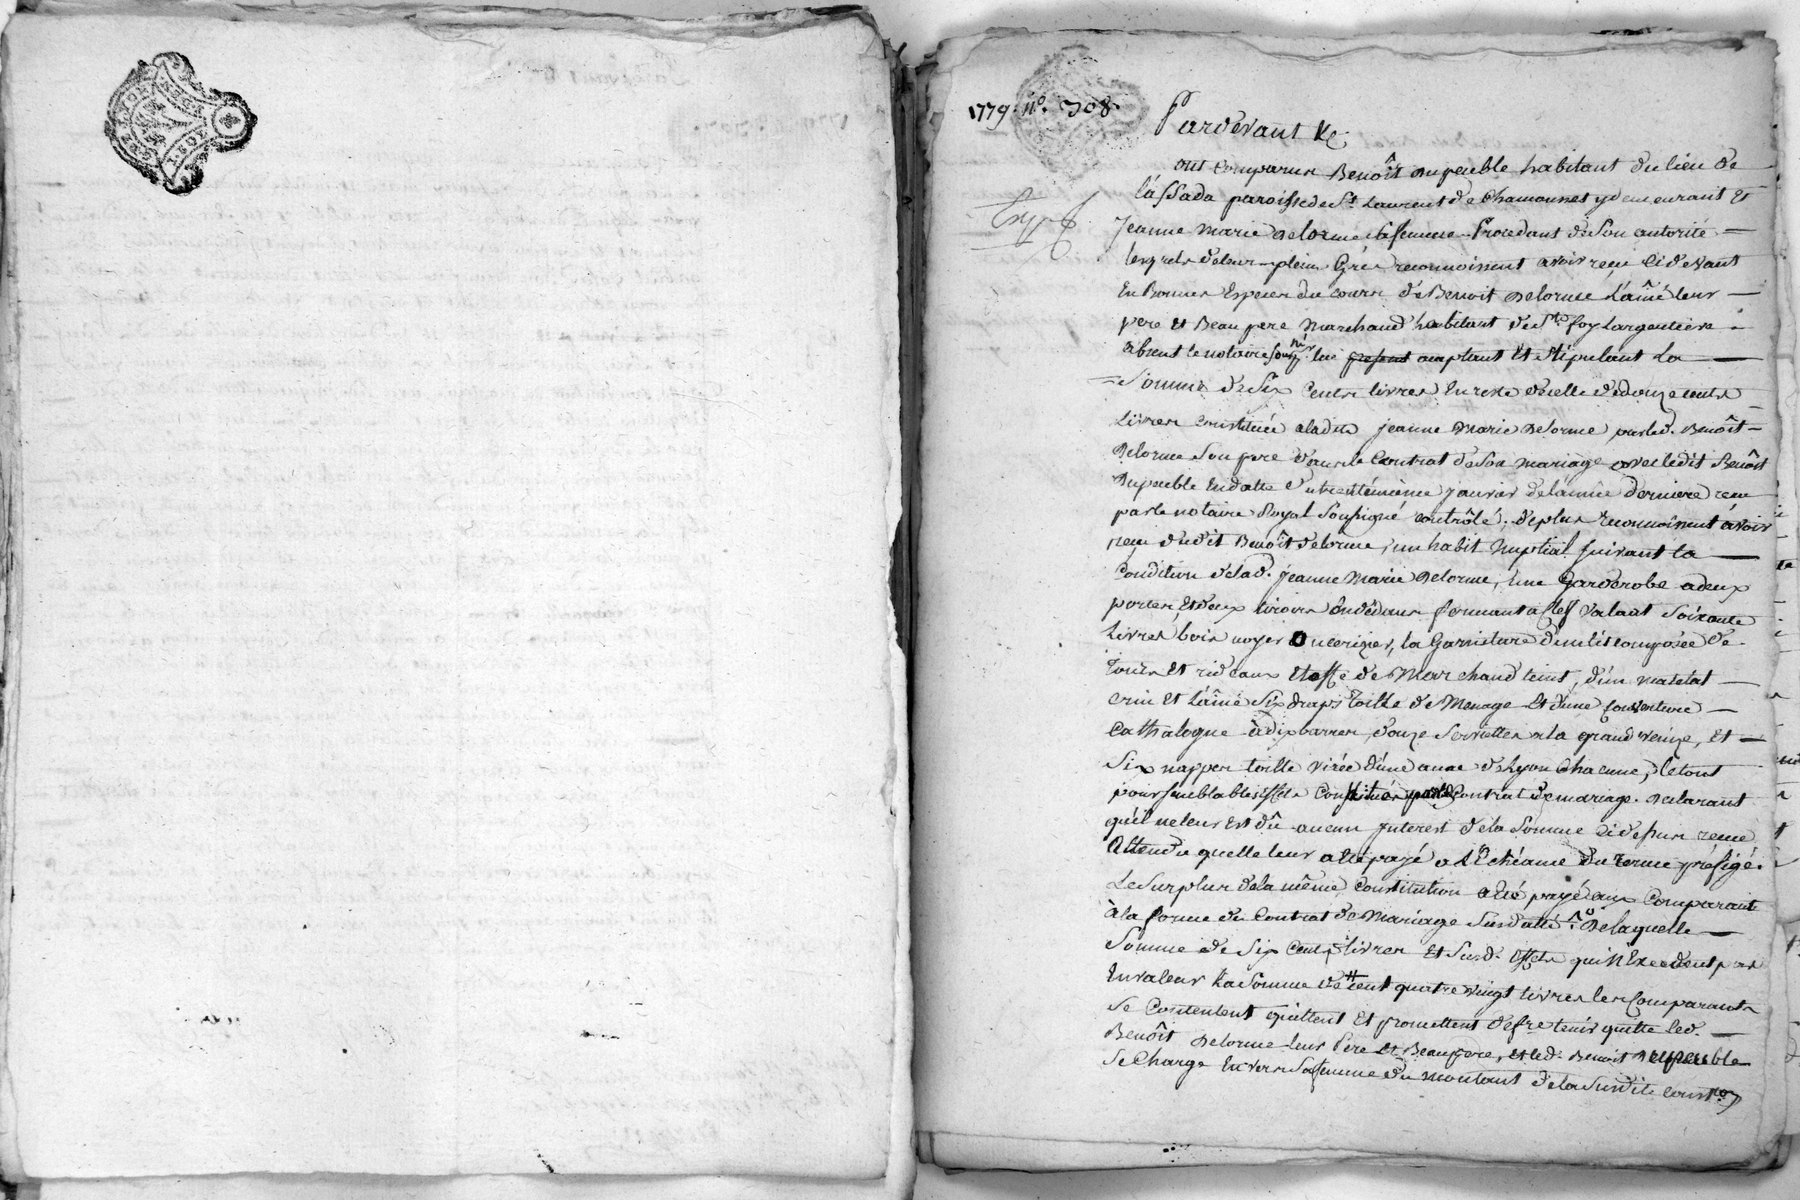 1779. N°. 308.
Pardevant &c
ont comparu Benoît Dupeuble habitant du lieu de
lassada paroisse de St. Laurent de Chamounet y demeurant et
Jeanne Marie Delorme sa femme Procedant de son autorité
lesquels de leur plein Gré reconnoissent avoir reçu ci devant
En Bonnes Especes du cours de Benoit Delorme L'aîné leur
pere et Beau pere Marchand habitant de Ste. foy Largentiere
absent le notaire soussné. lui present acceptant et stipulant La
Somme de Six Cents livres En reste de celle de douze cents
Livres constituée a ladite Jeanne Marie Delorme par led. Benoît
Delorme Son pere dans le Contrat de Son mariage avec ledit Benoît
Dupeuble En datte du trentième janvier de l'année derniere reçu
par le notaire Royal Soussigné contrôlé; deplus reconnoissent avoir
reçu dudit Benoît delorme, un habit Nuptial suivant la
Condition de lad. Jeanne Marie Delorme, une Garderobe a deux
portes, Et deux tiroirs En dedans fermant a clef valant Soixante
Livres, bois noyer Ou cerizier, la Garniture d'un lit composée de
Tours et rideaux Etoffe de Marchand teint, d'un matelat
crin et Laine Six draps Toille de Menage Et d'une Couverture
Cathalogne à dix barres, douze Serviettes a la grand Venize, Et
Six nappes toille virée d'une aune de Lyon Chacune, le tout
pour semblables effets Constitués par led Contrat de mariage. Declarant
qu'il ne leur Est dû aucun Interest de la Somme ci dessus recue
Attendu quelle leur a Eté payé a L'Echéance du terme préfigé.
Le Surplus de la même Constitution a Eté payé aux Comparants
à la forme du Contrat de Mariage Susdatté. De laquelle
Somme de Six Cents livres Et Susd. Effets qui N'Excedent pas
En valeur La Somme de cent quatre vingt livres les Comparants
Se Contentent quittent Et promettent de fre tenir quitte led.
Benoît Delorme leur Pere Et Beaupere, et led. Benoit Dupeuble
Se Charge Envers Sa femme du Montant de la Susdite Const.on